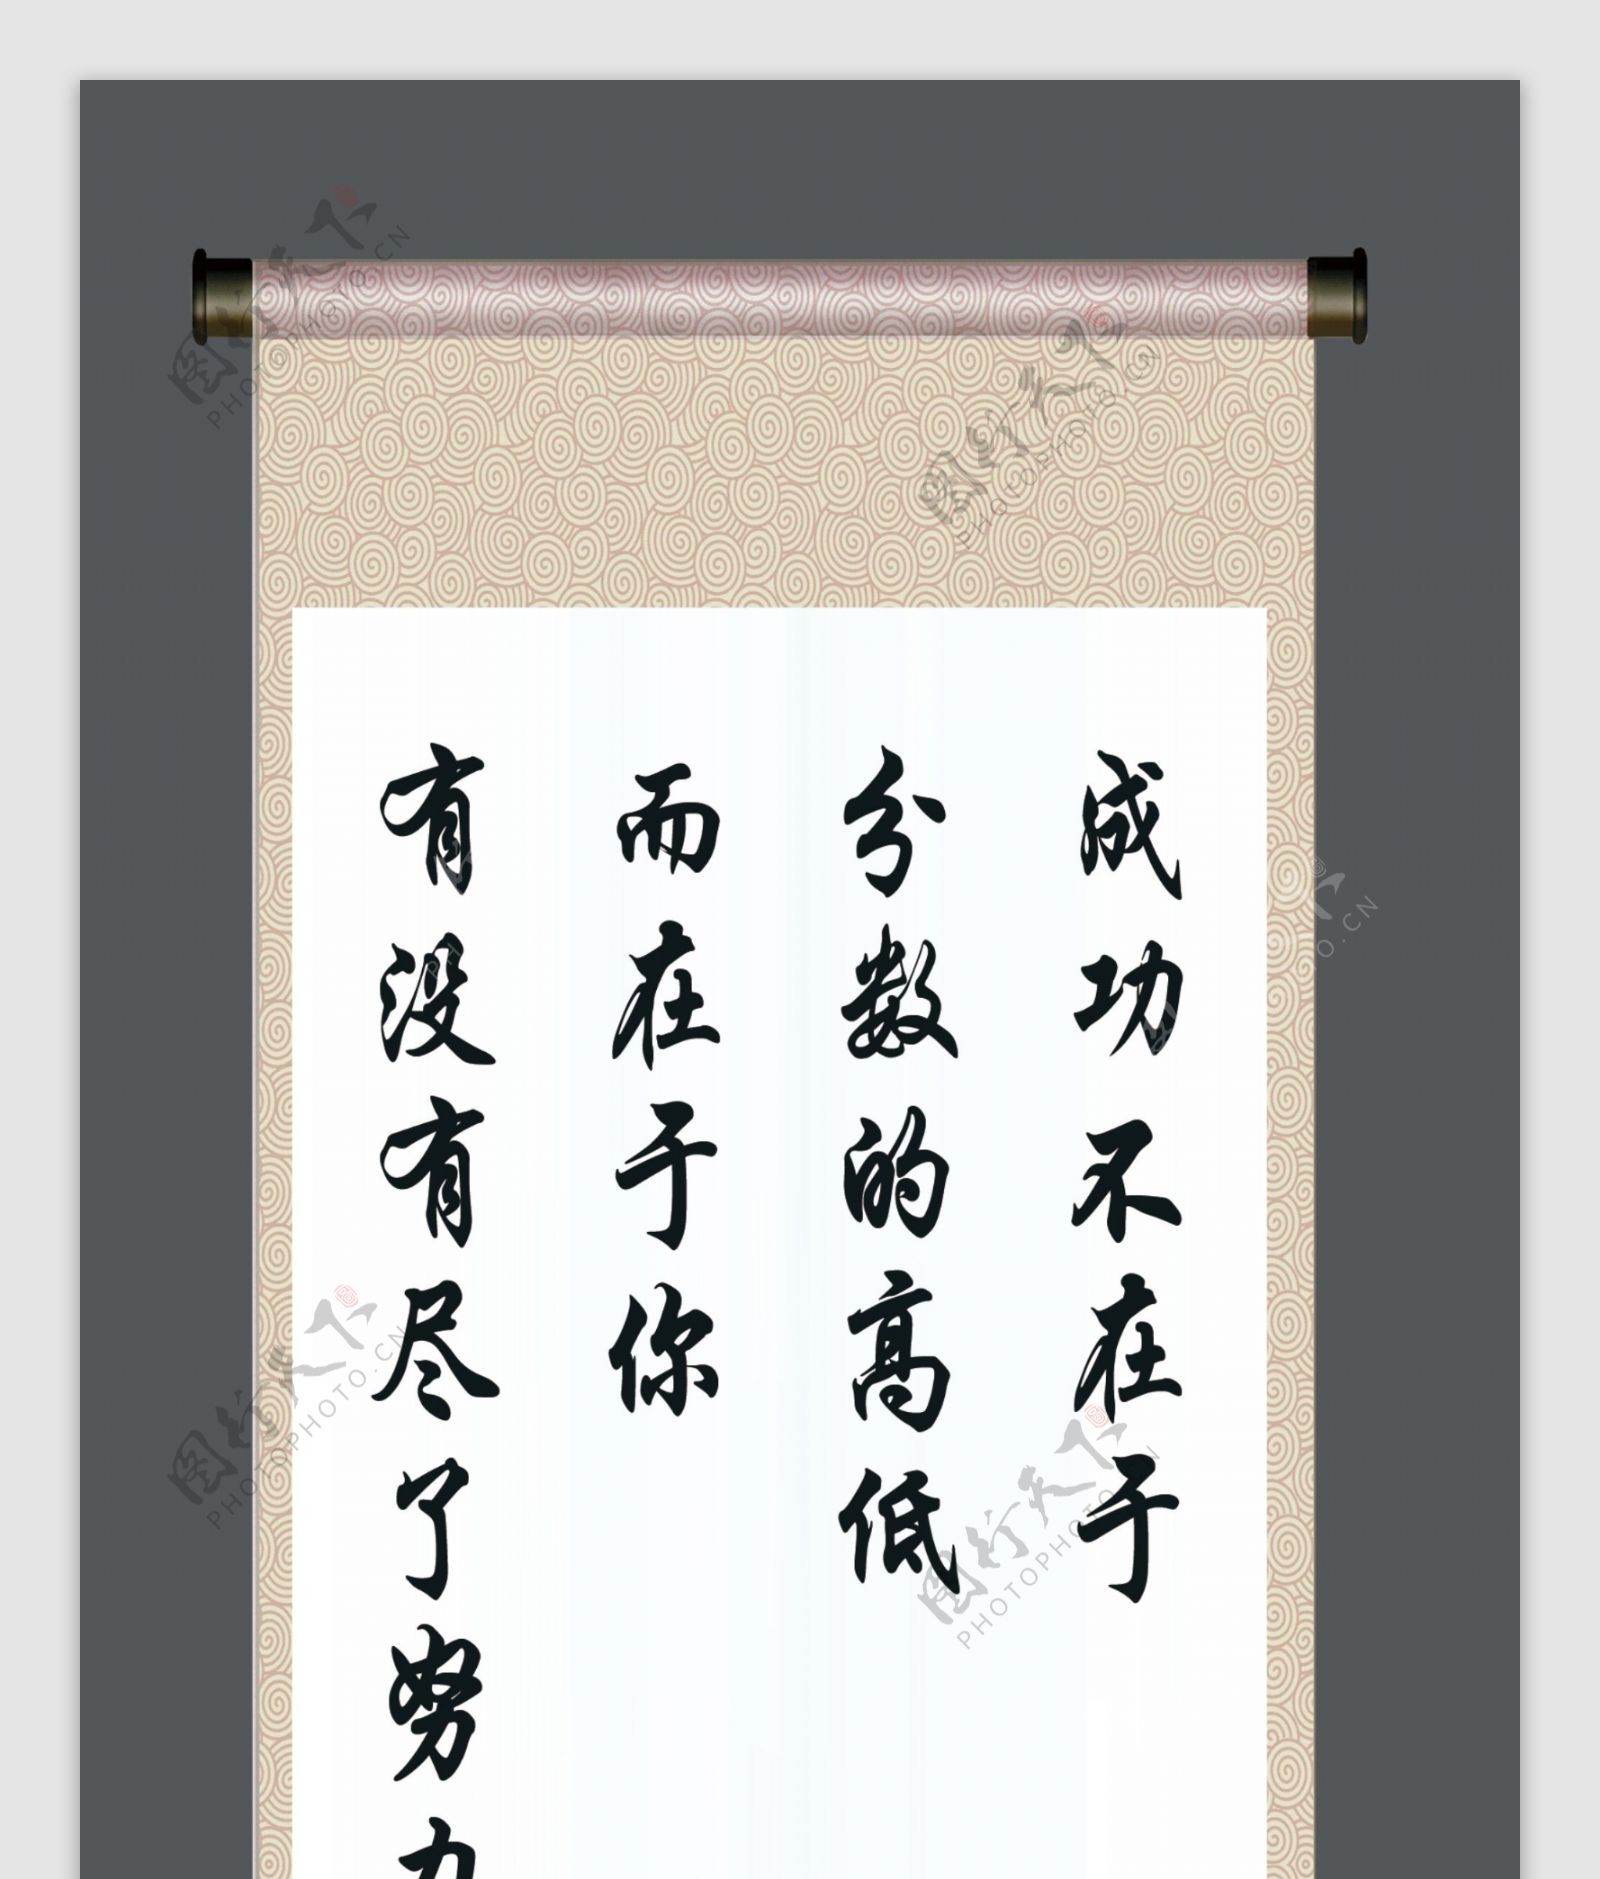 成功不在于
分数的高低
而在于你
有没有尽了努力
图行天下
PHOTOPHOTO.CN
图行天下
PHOTOPHOTO.CN
图行天下
PHOTOPHOTO.CN
图行天下
PHOTOPHOTO.CN